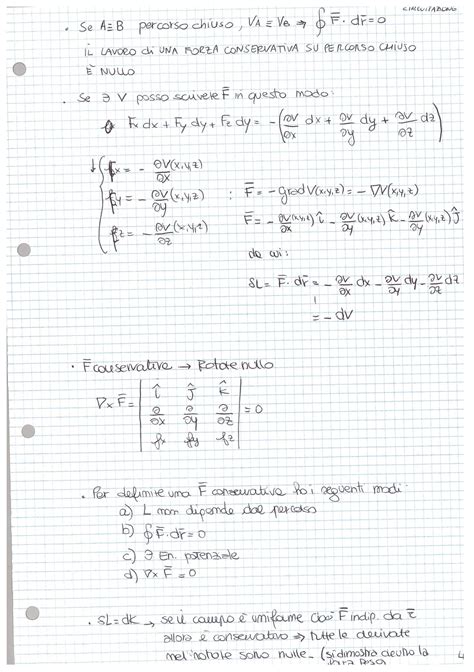 CIRCUITAZIONE
· Se A≡B percorso chiuso, V_A ≡ V_B → ∮ F̄ · dr̄ = 0
IL LAVORO di UNA FORZA CONSERVATIVA SU PERCORSO CHIUSO
È NULLO
· Se ∃ V posso scrivere F̄ in questo modo:
Fx dx + Fy dy + Fz dz = -(∂V/∂x dx + ∂V/∂y dy + ∂V/∂z dz)
↓ { fx = - ∂V(x,y,z)/∂x
fy = - ∂V(x,y,z)/∂y : F̄ = - grad V(x,y,z) = - ∇V(x,y,z)
fz = - ∂V(x,y,z)/∂z F̄ = - ∂V(x,y,z)/∂x î - ∂V/∂y (x,y,z) k̂ - ∂V/∂y (x,y,z) ĵ
da cui:
δL = F̄ · dr̄ = - ∂V/∂x dx - ∂V/∂y dy - ∂V/∂z dz
= - dV
· F̄ conservativa → Rotore nullo
∇×F̄ = | î ĵ k̂ |
| ∂/∂x ∂/∂y ∂/∂z | = 0
| fx fy fz |
· Per definire una F̄ conservativa ho i seguenti modi:
a) L non dipende dal percorso
b) ∮ F̄ · dr̄ = 0
c) ∃ En. potenziale
d) ∇×F̄ = 0
· δL = dK → se il campo è uniforme cioè F̄ indip. da r̄
allora è conservativo → tutte le derivate
nel rotore sono nulle. (si dimostra anche la
forza peso
4